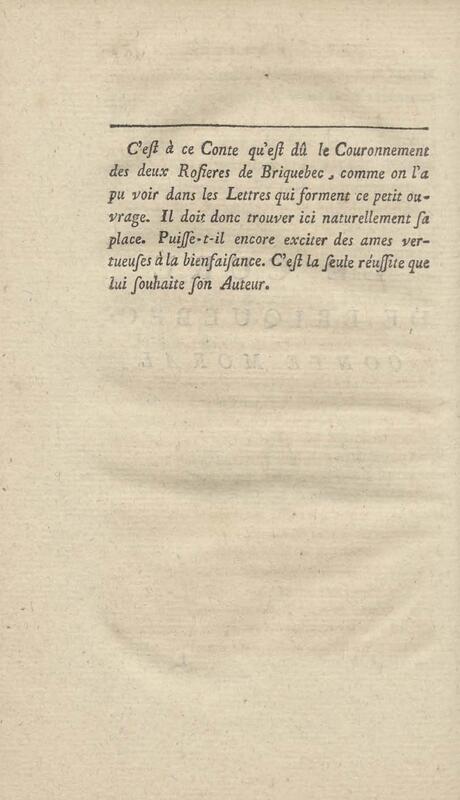 C'eſt à ce Conte qu'eſt dû le Couronnement
des deux Roſieres de Briquebec, comme on l'a
pu voir dans les Lettres qui forment ce petit ou-
vrage. Il doit donc trouver ici naturellement ſa
place. Puiſſe-t-il encore exciter des ames ver-
tueuſes à la bienfaiſance. C'eſt la ſeule réuſſite que
lui ſouhaite ſon Auteur.